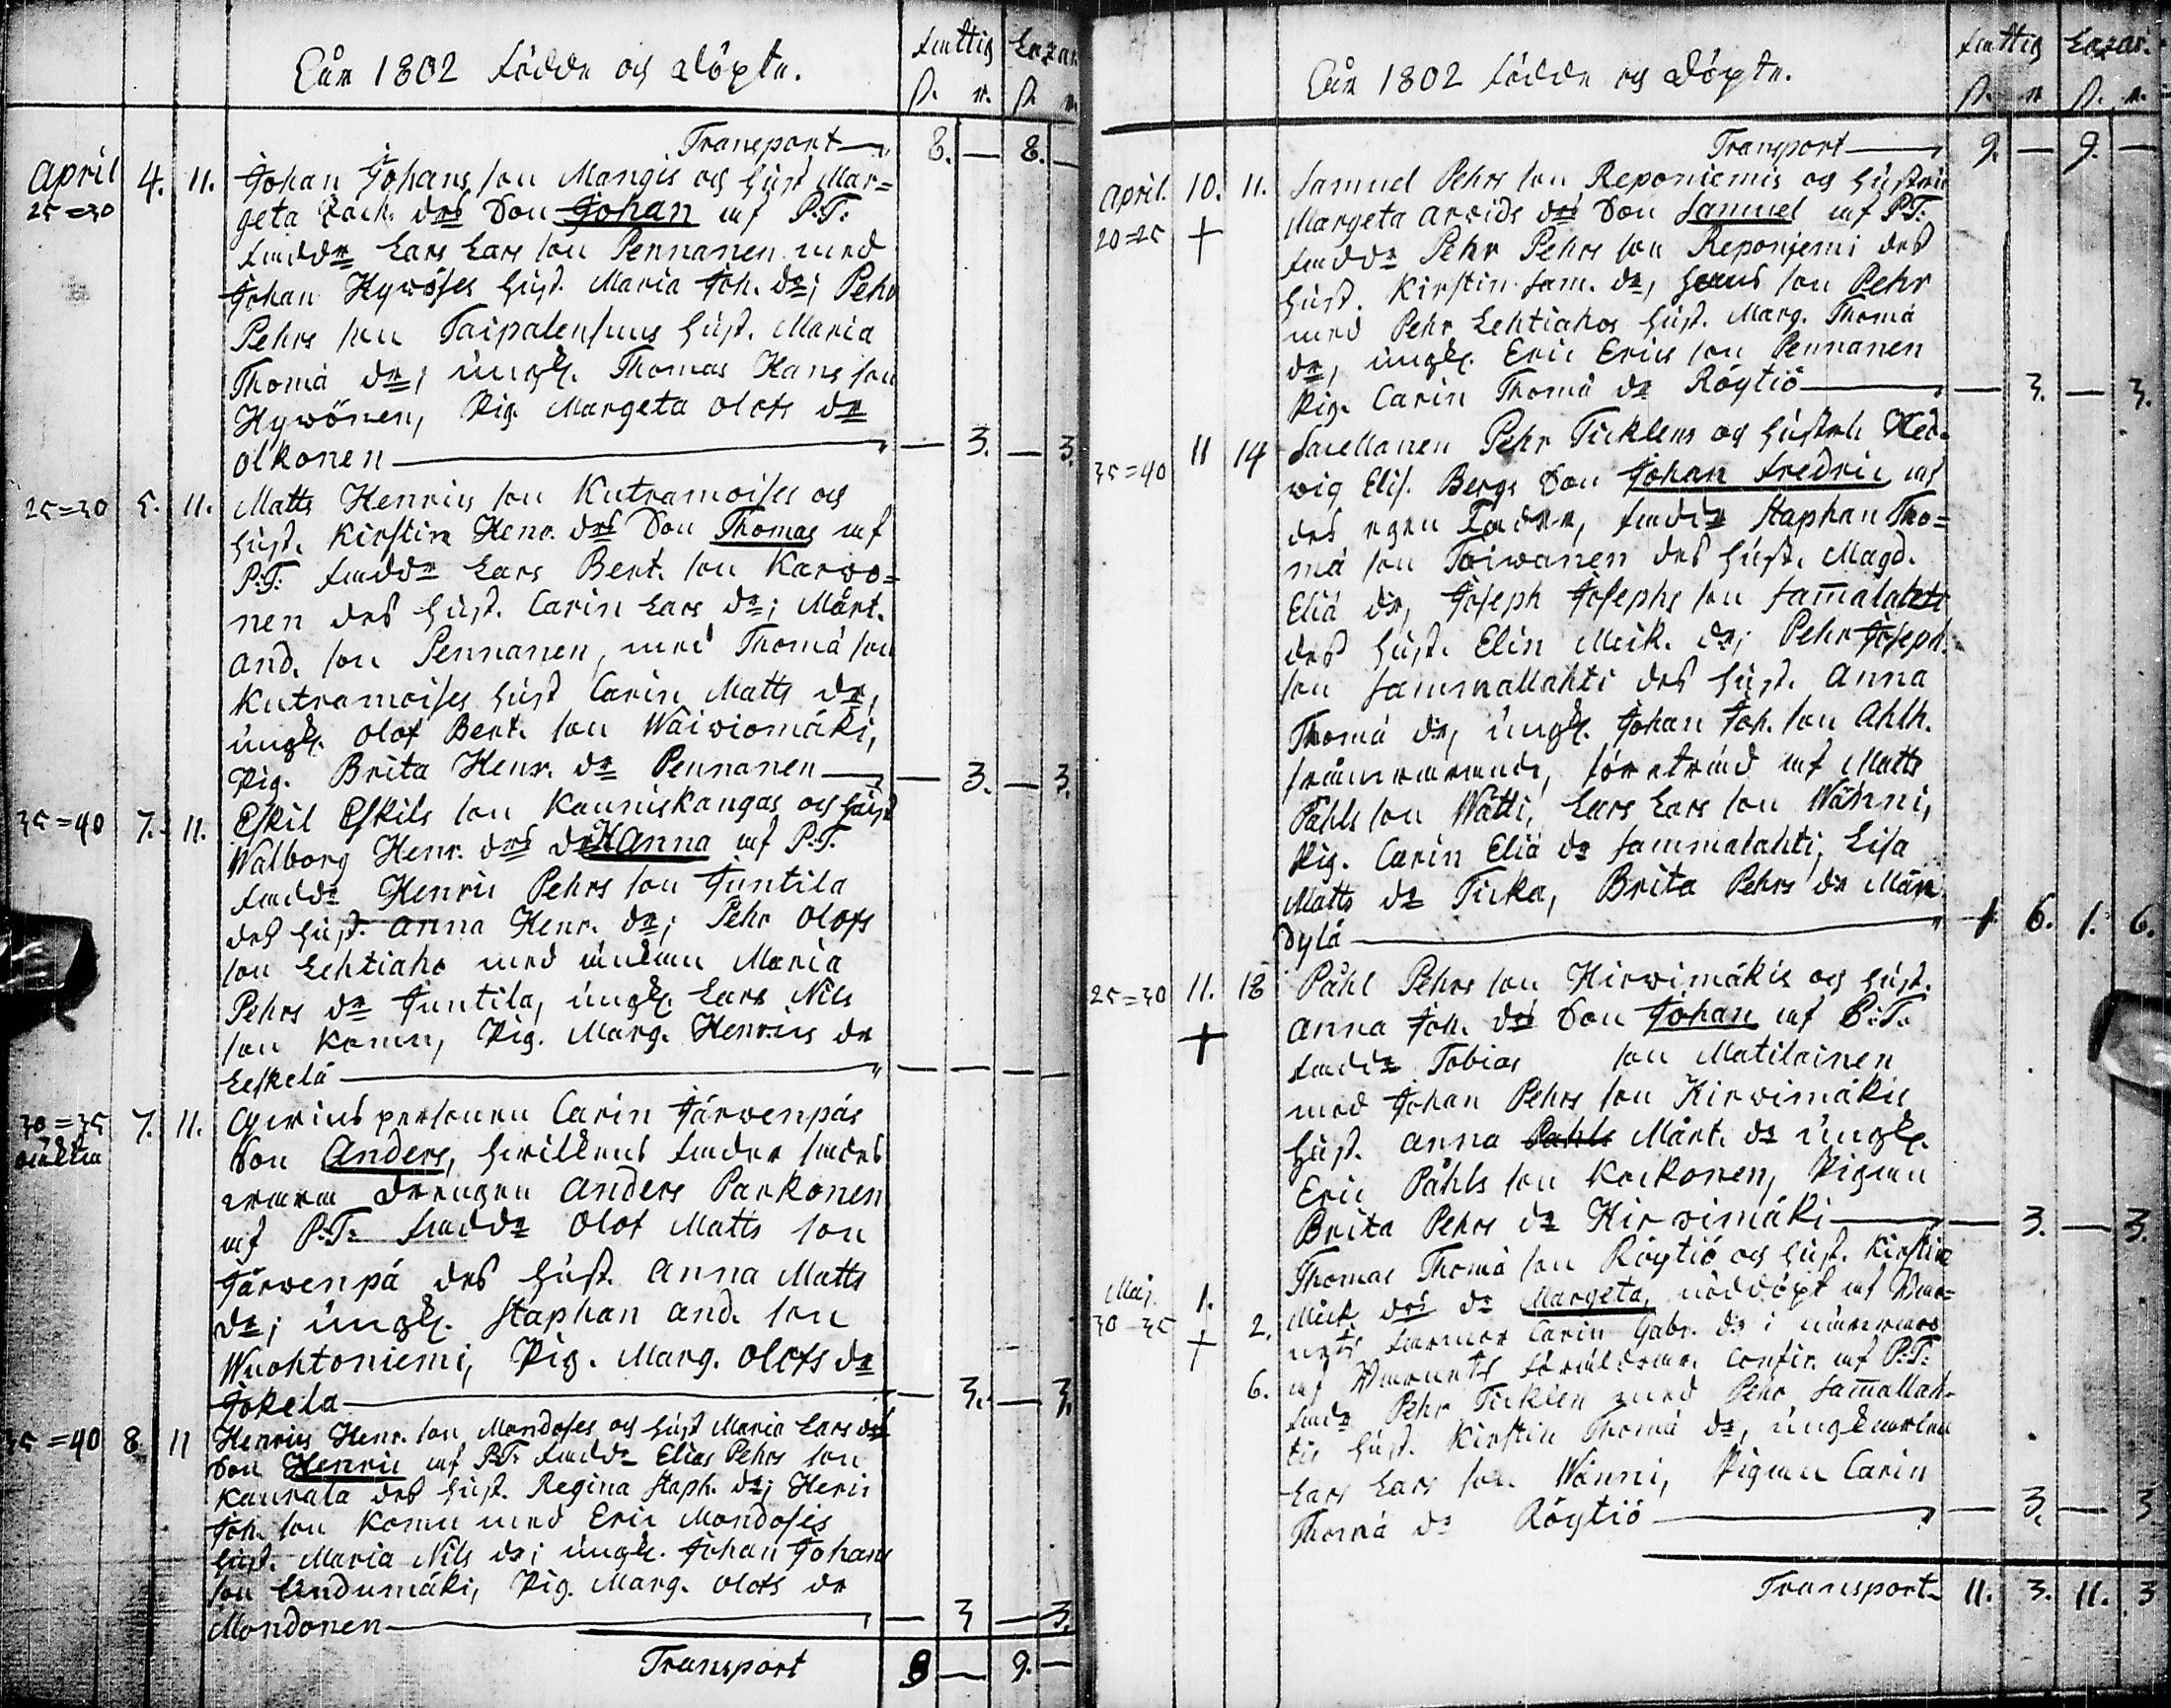 Åår 1802 födde och döpte.
fattig Lazar.
s. r. s. r.
Transport 8. — 8. —
April 4. 11. Johan Johans son Mangis och hust Mar=
25=30 geta Zach. drs Son Johan af P.T.
fadd. Lars Lars son Pennanen med
Johan Hywöses hust. Maria Joh. dr; Pehr
Pehrs son Taipalensuus hust. Maria
Thomä dr; ungk. Thomas Hans son
Hywönen, Pig. Margeta Olofs dr
Olkonen — 3. — 3.
25=30 5. 11. Matts Henrics son Kutramoises och
hust. Kirstin Henr. drs Son Thomas af
P.T. fadd. Lars Bert. son Karwo=
nen des hust. Carin Lars dr; Mårt.
And. son Pennanen, med Thomä son
Kutramoises hust Carin Matts dr,
ungk. Olof Bert. son Wäiwiomäki,
Pig. Brita Henr. dr Pennanen — 3. — 3.
35=40 7. 11. Eskil Eskils son Kauniskangas och hust
Walborg Henr. drs dr Hanna af P.T.
fadd. Henric Pehrs son Juntila
des hust. Anna Henr. dr; Pehr Olofs
son Lehtiaho med enkan Maria
Pehrs dr Juntila, ungk. Lars Nils
son Komu, Pig. Marg. Henrics dr
Leskelä — — — —
30=35 7. 11. Qwinspersonen Carin Järwenpäs
oäkta Son Anders, hwilkens fader sades
wara Drengen Anders Parkonen
af P.T. fadd. Olof Matts son
Järwenpä des hust. Anna Matts
dr; ungk. Staphan And. son
Wuohtoniemi, Pig. Marg. Olofs dr
Jokela — 3. — 3.
35=40 8 11 Henrics Henr. son Mondoses och hust Maria Lars drs
Son Henric af P.T. fadd. Elias Pehrs son
Kaurala des hust. Regina Staph. dr; Henric
Joh. son Komu med Eric Mondosis
hust. Maria Nils dr; ungk. Johan Johans
son Lindumäki, Pig. Marg. Olofs dr
Mondonen — 3 — 3.
Transport 9 — 9. —
Åår 1802 födde och döpte.
fattig Lazar.
s. r. s. r.
Transport 9. — 9. —
April. 10. 11. Samuel Pehrs son Reponiemis och hustru
20=25 + Margeta Arvids drs Son Samuel af P.T.
fadd. Pehr Pehrs son Reponiemi des
hust. Kirstin Sam. dr, hans son Pehr
med Pehr Lehtiahos hust. Marg. Thomä
dr, ungk. Eric Erics son Pennanen
Pig. Carin Thomä dr Röytiö — 3. — 3.
35=40 11 14 Pehr Ticklens och hustru Hed=
wig Elis. Bergs Son Johan Fredric af
des egen Fader, fadd. Staphan Tho=
mä son Toiwanen des hust. Magd.
Eliä dr, Joseph Josephs son Samalahti
des hust. Elin Mick. dr; Pehr Joseph.
son Sammallahti des hust. Anna
Thomä dr, ungk. Johan Joh. son Ahlh.
frånwarande, företräd af Matts
Påhls son Wätti, Lars Lars son Wänni,
Pig. Carin Eliä dr Sammalahti, Lisa
Matts dr Ticka, Brita Pehrs dr Män
dylä 1 6. 1. 6.
25=30 11. 18 Påhl Pehrs son Hirwimäkis och hust.
+ Anna Joh. drs Son Johan af P.T.
fadd. Tobias son Matilainen
med Johan Pehrs son Hirwimäkis
hust. Anna Påhls Mårt. dr ungk.
Eric Påhls son Kockonen, Pigan
Brita Pehrs dr Hirwimäki — 3. — 3.
Maj. 1. Thomas Thomä son Röytiö och hust. Kirstin
30=35 2. Mick drs dr Margeta, nöddöpt af
+ farmor Carin Gabr. dr i närwaro
6. af föräldrar. Confir. af P.T.
fadd. Pehr Ticklen med Pehr Samallah=
tis hust. Kirstin Thomä dr, ungkarlen
Lars Lars son Wänni, Pigan Carin
Thomä dr Röytiö — 3. — 3
Transport 11. 3. 11. 3